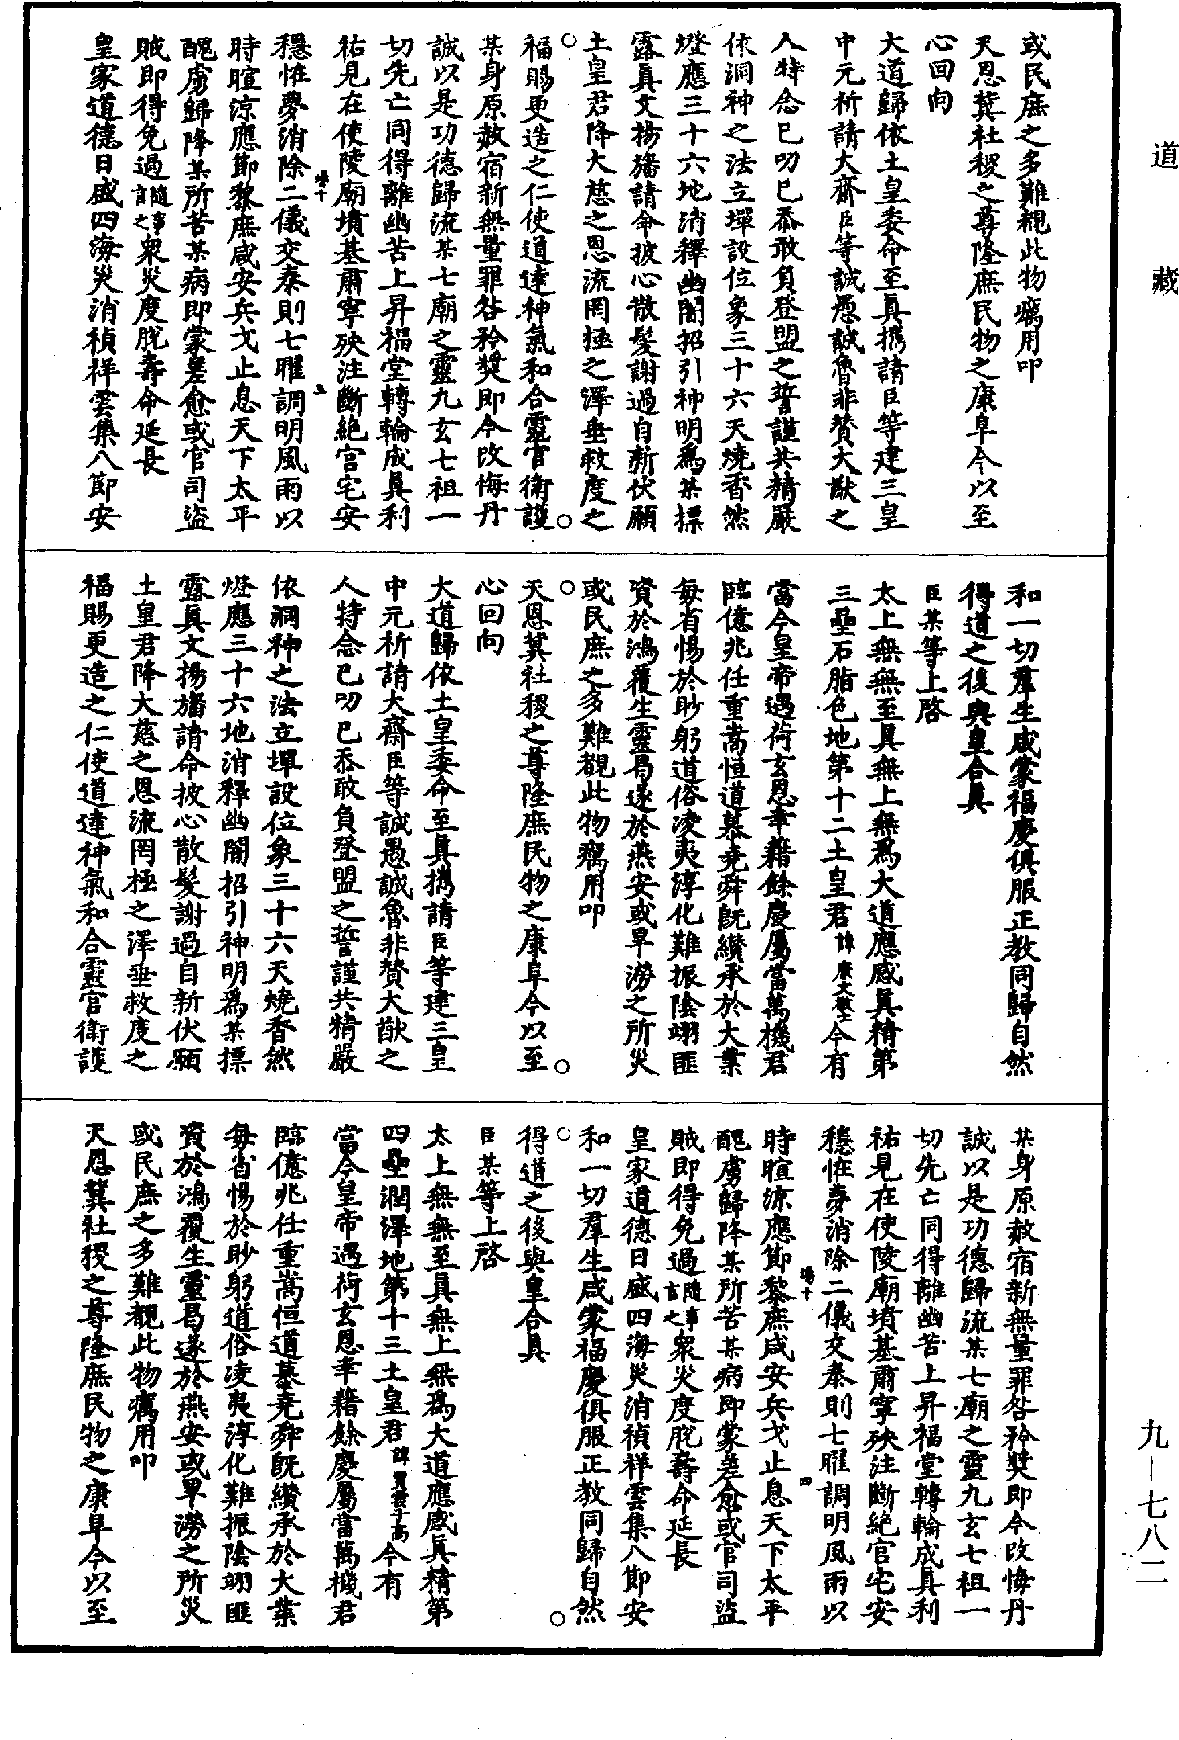 道藏
九—七八二
或民庶之多難覩此物癘用叩
天恩冀社稷之尊隆庶民物之康阜今以至
心回向
大道歸依土皇委命至真携請臣等建三皇
中元祈請大齋臣等誠愚誠魯非贊大猷之
人特念已叨已忝敢負登盟之誓謹共精嚴
依洞神之法立墠設位象三十六天燒香然
燈應三十六地消釋幽闇招引神明為某摽
露真文揚旛請命披心散髮謝過自新伏願
土皇君降大慈之恩流罔極之澤垂救度之
福賜更造之仁使道達神氣和合靈官衛護
某身原赦宿新無量罪咎矜奬即今改悔丹
誠以是功德歸流某七廟之靈九玄七祖一
切先亡同得離幽苦上昇福堂轉輪成真利
祐見在使陵廟墳基肅寧殃注斷絕宮宅安
穩恠夢消除二儀交泰則七曜調明風雨以
時暄涼應節黎庶咸安兵戈止息天下太平
醜虜歸降某所苦某病即蒙差愈或官司盜
賊即得免過隨事言之衆災度脫壽命延長
皇家道德日盛四海災消禎祥雲集八節安
和一切羣生咸蒙福慶俱服正教同歸自然
得道之後與皇合真
臣某等上啓
太上無無至真無上無為大道應感真精第
三壘石脂色地第十二土皇君諱今有
當今皇帝遇荷玄恩幸籍餘慶屬當萬機君
臨億兆任重嵩恒道慕堯舜既纘承於大業
每省惕於眇躬道俗淩夷淳化難振陰翊匪
資於鴻覆生靈曷遂於燕安或旱澇之所災
或民庶之多難覩此物癘用叩
天恩冀社稷之尊隆庶民物之康阜今以至
心回向
大道歸依土皇委命至真携請臣等建三皇
中元祈請大齋臣等誠愚誠魯非贊大猷之
人特念已叨已忝敢負登盟之誓謹共精嚴
依洞神之法立墠設位象三十六天燒香然
燈應三十六地消釋幽闇招引神明為某摽
露真文揚旛請命披心散髮謝過自新伏願
土皇君降大慈之恩流罔極之澤垂救度之
福賜更造之仁使道達神氣和合靈官衛護
某身原赦宿新無量罪咎矜奬即今改悔丹
誠以是功德歸流某七廟之靈九玄七祖一
切先亡同得離幽苦上昇福堂轉輪成真利
祐見在使陵廟墳基肅寧殃注斷絕宮宅安
穩恠夢消除二儀交泰則七曜調明風雨以
時暄涼應節黎庶咸安兵戈止息天下太平
醜虜歸降某所苦某病即蒙差愈或官司盜
賊即得免過隨事言之衆災度脫壽命延長
皇家道德日盛四海災消禎祥雲集八節安
和一切羣生咸蒙福慶俱服正教同歸自然
得道之後與皇合真
臣某等上啓
太上無無至真無上無為大道應感真精第
四壘潤澤地第十三土皇君諱賈雲子高今有
當今皇帝遇荷玄恩幸籍餘慶屬當萬機君
臨億兆任重嵩恒道慕堯舜既纘承於大業
每省惕於眇躬道俗淩夷淳化難振陰翊匪
資於鴻覆生靈曷遂於燕安或旱澇之所災
或民庶之多難覩此物癘用叩
天恩冀社稷之尊隆庶民物之康阜今以至